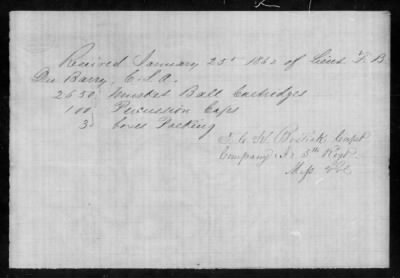 Received January 25th 1862 of Lieut. F. B
Du Barry, C.S.A.
2650 Musket Ball Cartridges
100 Percussion Caps
3 boxes Packing
Capt
Company I. 5th Regt
Miss Vol